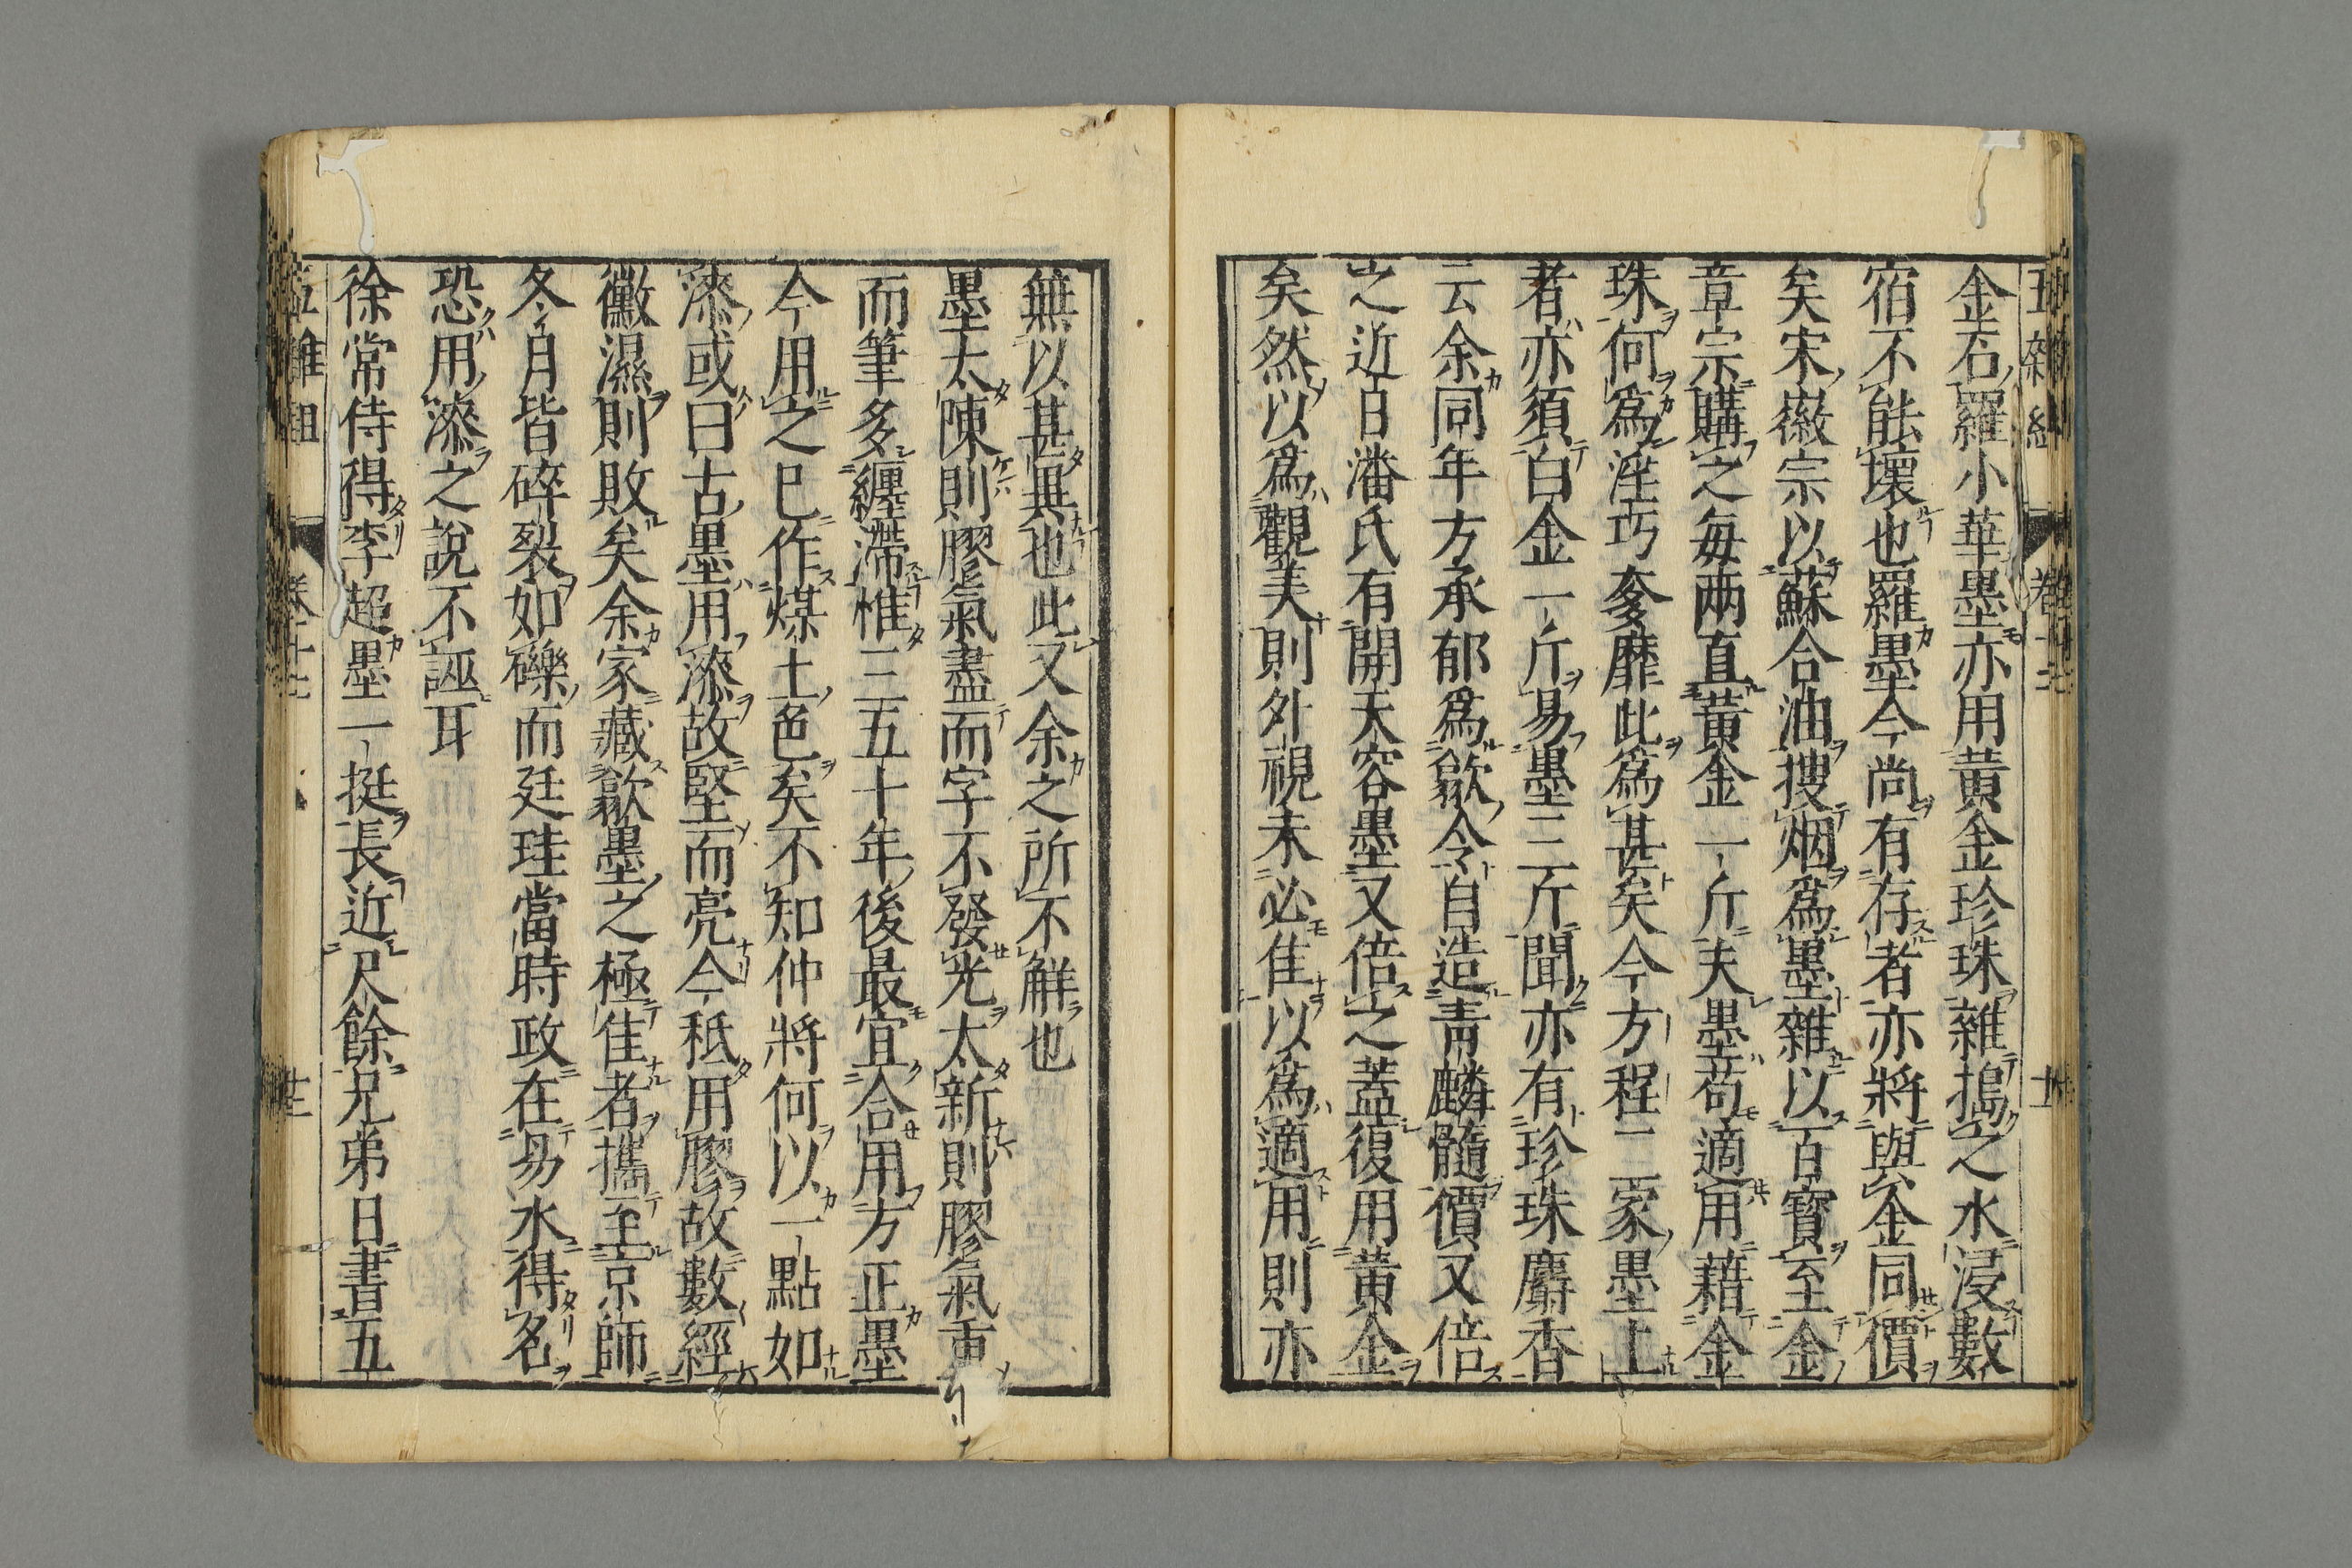 金石羅小華墨亦用黃金珍珠雜搗之水浸數
宿不能壞也羅墨今尚有存者亦將與金同價
矣宋徽宗以蘇合油搜烟爲墨雜以百寶至金
章宗購之每兩直黃金一斤夫墨苟適用藉金
珠何爲淫巧奓靡此爲甚矣今方程二家墨上
者亦須白金一斤易墨三斤聞亦有珍珠麝香
云余同年方承郁爲歙令自造青麟髓價又倍
之近日潘氏有開天容墨又倍之蓋復用黃金
矣然以爲觀美則外視未必佳以爲適用則亦
無以甚異也此又余之所不解也
墨太陳則膠氣盡而字不發光太新則膠氣重
而筆多纏滯惟三五十年後最宜合用方正墨
今用之已作煤土色矣不知仲將何以一點如
漆或曰古墨用漆故堅而亮今秖用膠故數經
黴濕則敗矣余家藏歙墨之極佳者攜至京師
冬月皆碎裂如礫而廷珪當時政在易水得名
恐用漆之說不誣耳
徐常侍得李超墨一挺長近尺餘兄弟日書五